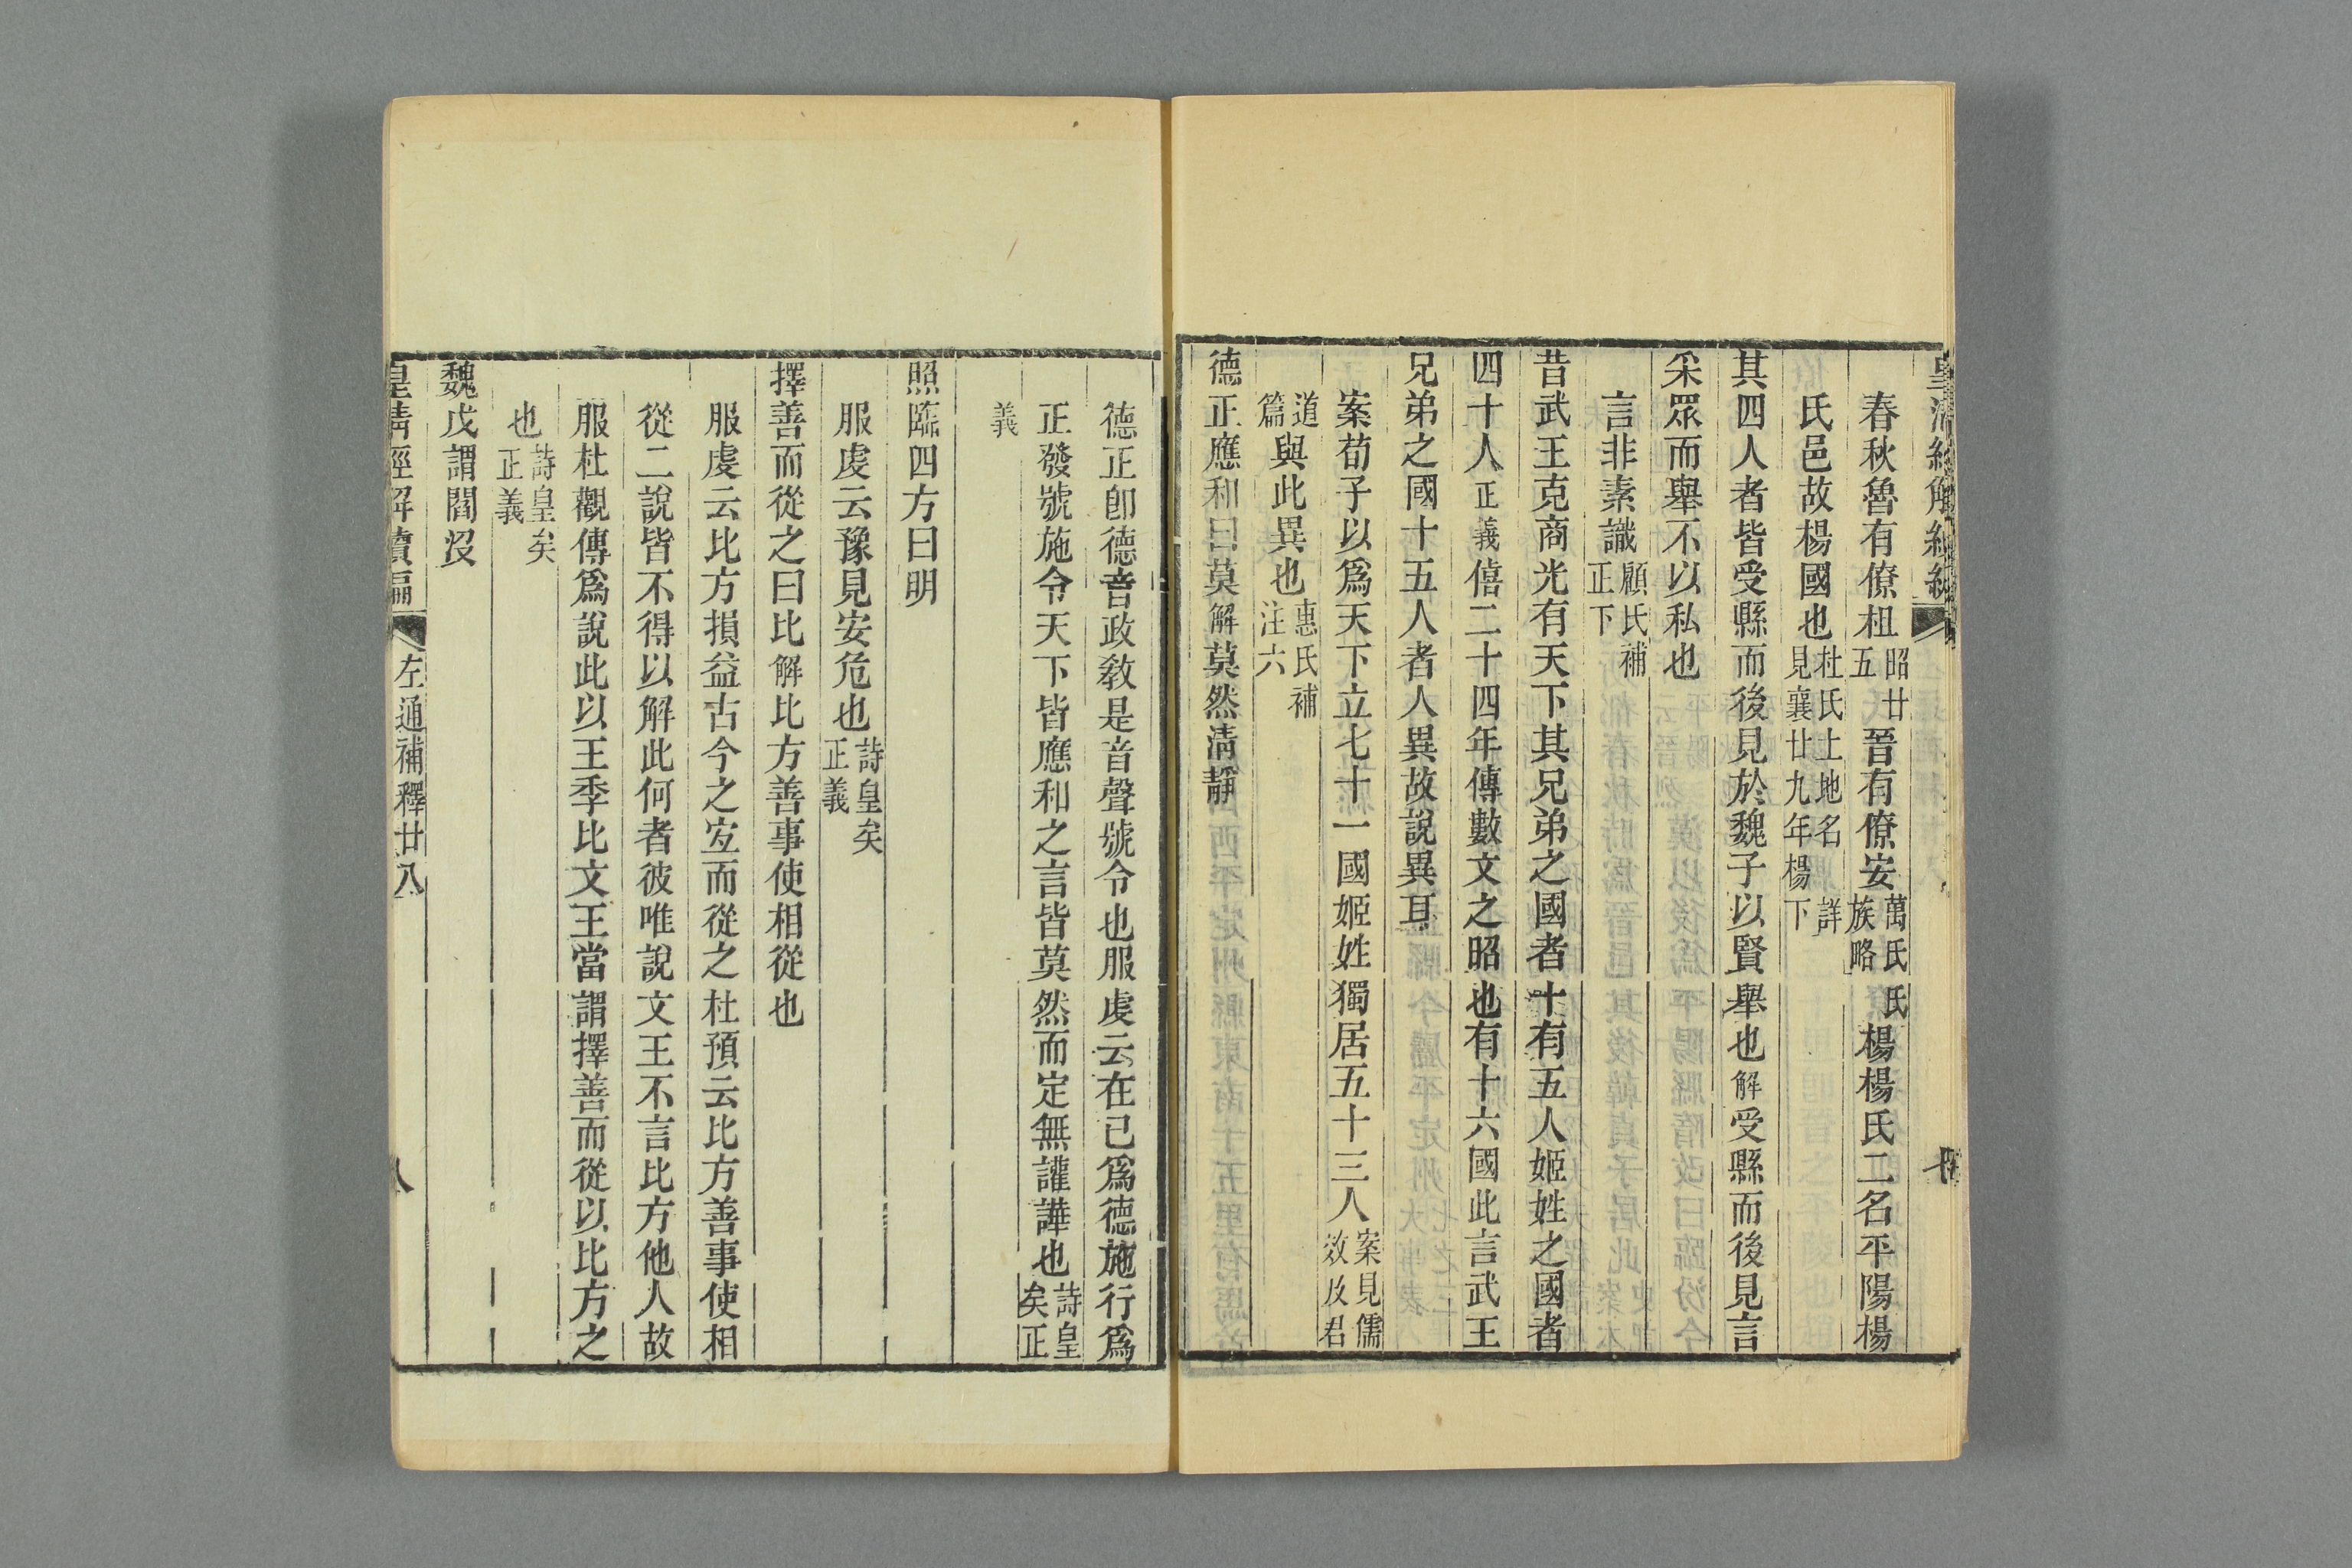 春秋魯有僚柤昭廿五晉有僚安萬氏氏族略楊楊氏二名平陽楊
氏邑故楊國也杜氏土地名詳見襄廿九年楊下
其四人者皆受縣而後見於魏子以賢舉也解受縣而後見言
采眾而舉不以私也
言非素識顧氏補正下
昔武王克商光有天下其兄弟之國者十有五人姬姓之國者
四十人正義僖二十四年傳數文之昭也有十六國此言武王
兄弟之國十五人者人異故說異耳
案荀子以爲天下立七十一國姬姓獨居五十三人案見儒效及君
道篇與此異也惠氏補注六
德正應和曰莫解莫然淸靜
德正卽德音政敎是音聲號令也服虔云在已爲德施行爲
正發號施令天下皆應和之言皆莫然而定無讙譁也詩皇矣正
義
照臨四方曰明
服虔云豫見安危也詩皇矣正義
擇善而從之曰比解比方善事使相從也
服虔云比方損益古今之宐而從之杜預云比方善事使相
從二說皆不得以解此何者彼唯說文王不言比方他人故
服杜觀傳爲說此以王季比文王當謂擇善而從以比方之
也詩皇矣正義
魏戊謂閻沒
皇淸經解續編 左通補釋廿八 八